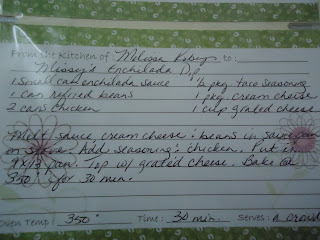 From the Kitchen of Melissa to:
Missy's Enchilada Dip
1 small can enchilada sauce ½ pkg taco seasoning
1 can refried beans 1 pkg. cream cheese
2 cans chicken 1 cup grated cheese
Melt sauce, cream cheese & beans in sauce pan
on stove. Add seasoning & chicken. Put in
9x13 pan. Top w/ grated cheese. Bake @
350° for 30 min.
Oven Temp: 350° Time: 30 min. Serves: a crowd